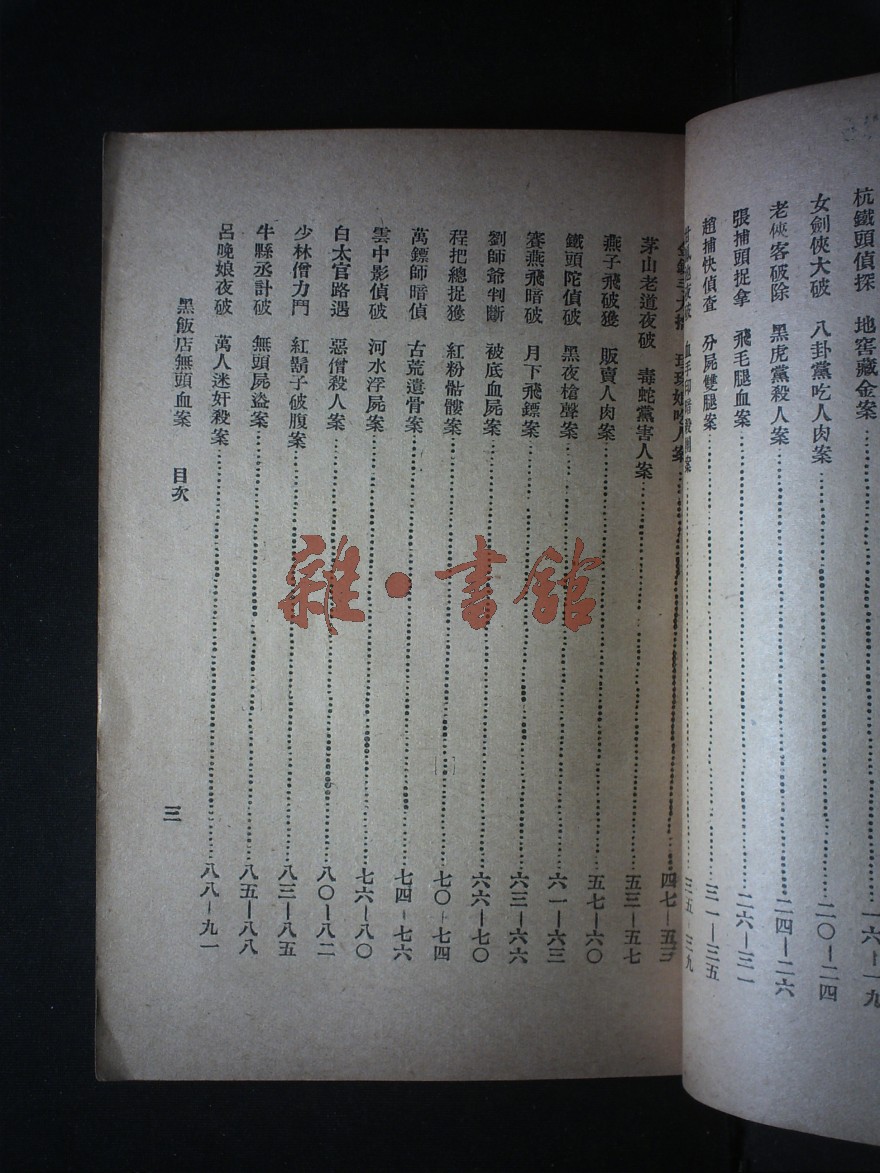 杭鐵頭偵探 地窖藏金案 一六—一九
女劍俠大破 八卦黨吃人肉案 二〇—二四
老俠客破除 黑虎黨殺人案 二四—二六
張捕頭捉拿 飛毛腿血案 二六—三一
趙捕快偵查 分屍雙腿案 三一—三五
三五—三九
四七—五三
茅山老道夜破 毒蛇黨害人案 五三—五七
燕子飛破獲 販賣人肉案 五七—六〇
鐵頭陀偵破 黑夜槍聲案 六一—六三
賽燕飛暗破 月下飛鏢案 六三—六六
劉師爺判斷 被底血屍案 六六—七〇
程把總捉獲 紅粉骷髏案 七〇—七四
萬鏢師暗偵 古荒遺骨案 七四—七六
雲中影偵破 河水浮屍案 七六—八〇
白太官路遇 惡僧殺人案 八〇—八二
少林僧力鬥 紅鬍子破腹案 八三—八五
牛縣丞計破 無頭屍盜案 八五—八八
呂晚娘夜破 萬人迷奸殺案 八八—九一
黑飯店無頭血案 目次 三
雜·書館